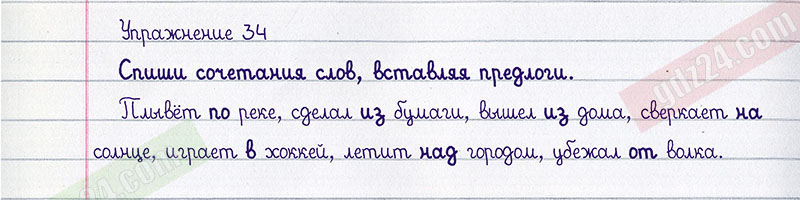 Упражнение 34
Спиши сочетания слов, вставляя предлоги.
Плывёт по реке, сделал из бумаги, вышел из дома, сверкает на
солнце, играет в хоккей, летит над городом, убежал от волка.
gdz24.com
24.com